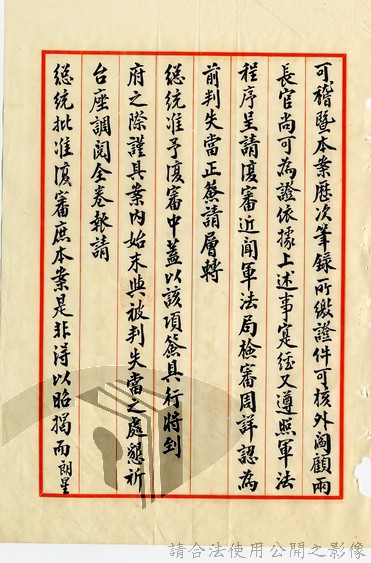 可稽暨本案歷次筆錄所繳證件可核外閻顧兩
長官尚可為證依據上述事寔經又遵照軍法
程序呈請復審近聞軍法局檢審周詳認為
前判失當正簽請層轉
總統准予復審中蓋以該項簽具行將到
府之際謹具案內始末與被判失當之處懇祈
台座調閱全卷報請
總統批准復審庶本案是非得以昭揭而朗星
請合法使用公開之影像